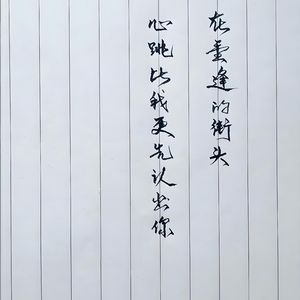 在重逢的街头
心跳比我更先认出你